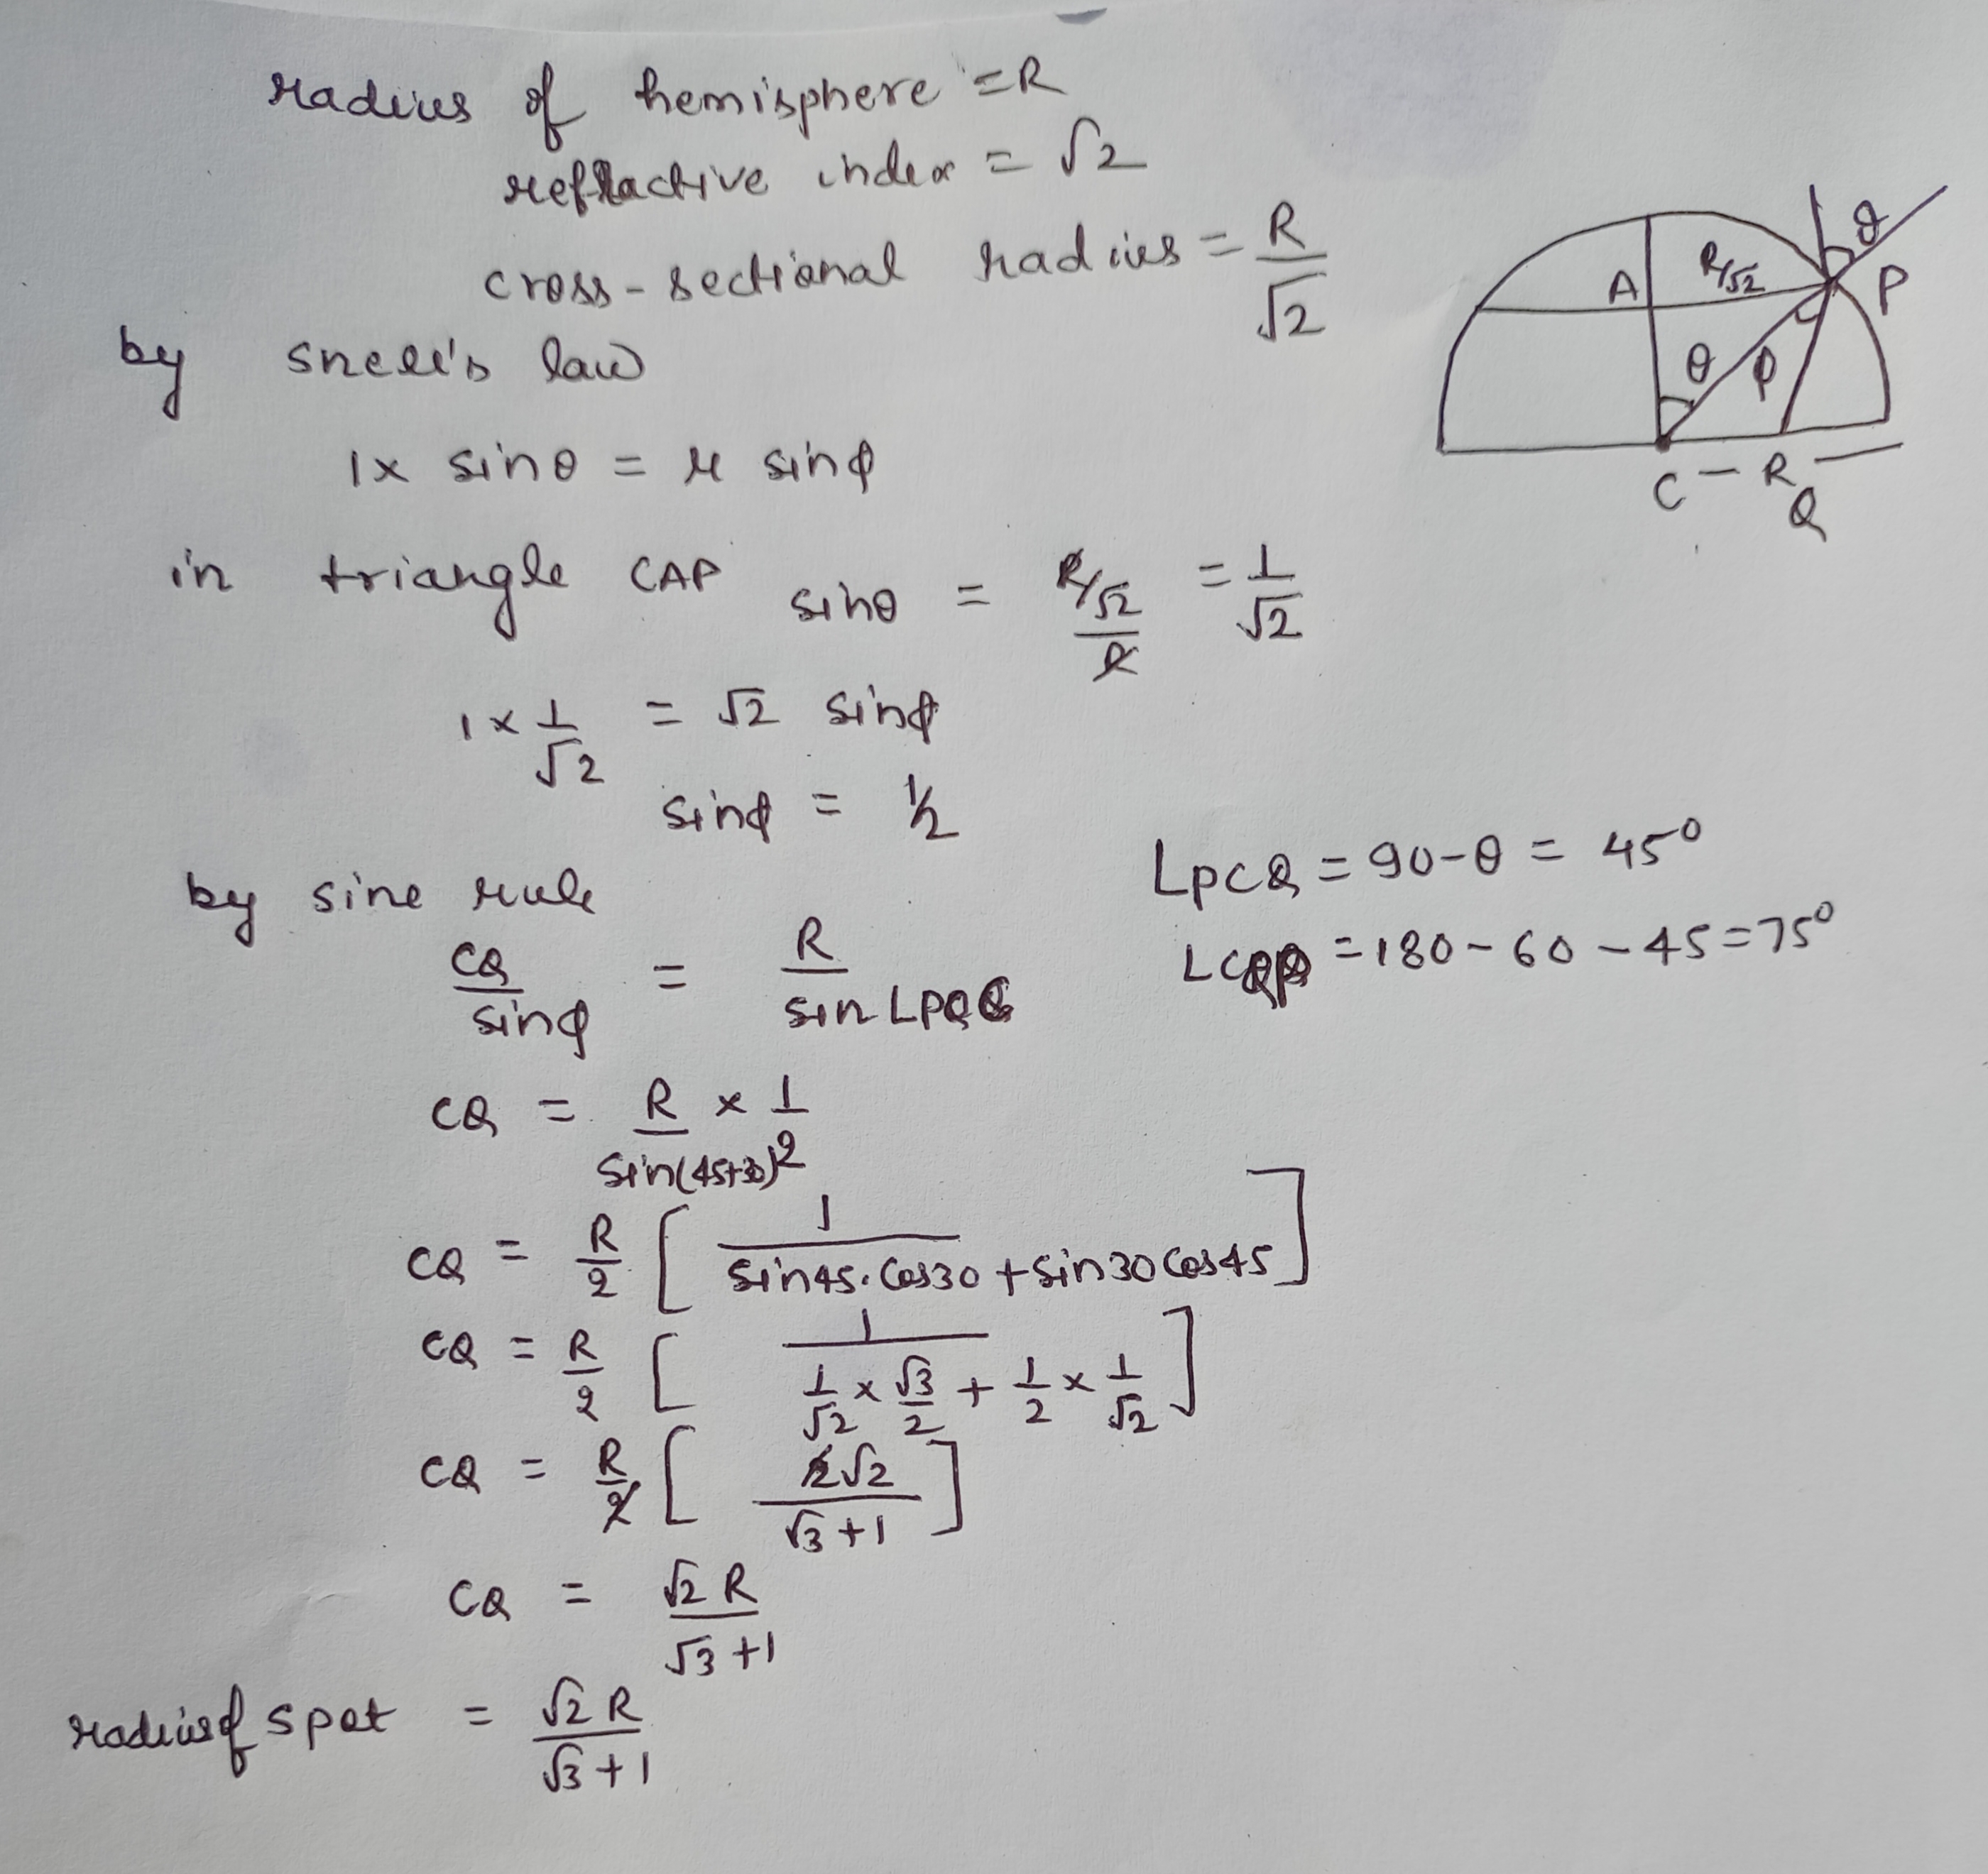 radius of hemisphere = R
refractive index = √2
cross-sectional radius = R/√2
by snell's law
1 x sinθ = μ sinφ
in triangle CAP sinθ = (R/√2)/R = 1/√2
1 x 1/√2 = √2 sinφ
sinφ = 1/2
by sine rule
CQ/sinφ = R/sin∠PQC
CQ = R/sin(45+30) x 1/2
CQ = R/2 [ 1/(sin45.cos30 + sin30cos45) ]
CQ = R/2 [ 1/(1/√2 x √3/2 + 1/2 x 1/√2) ]
CQ = R/2 [ 2√2/(√3+1) ]
CQ = √2 R/(√3+1)
radius of spot = √2 R/(√3+1)
θ
A R/√2 P
θ φ
C - R —
Q
∠PCQ = 90-θ = 45°
= 180 - 60 - 45 = 75°